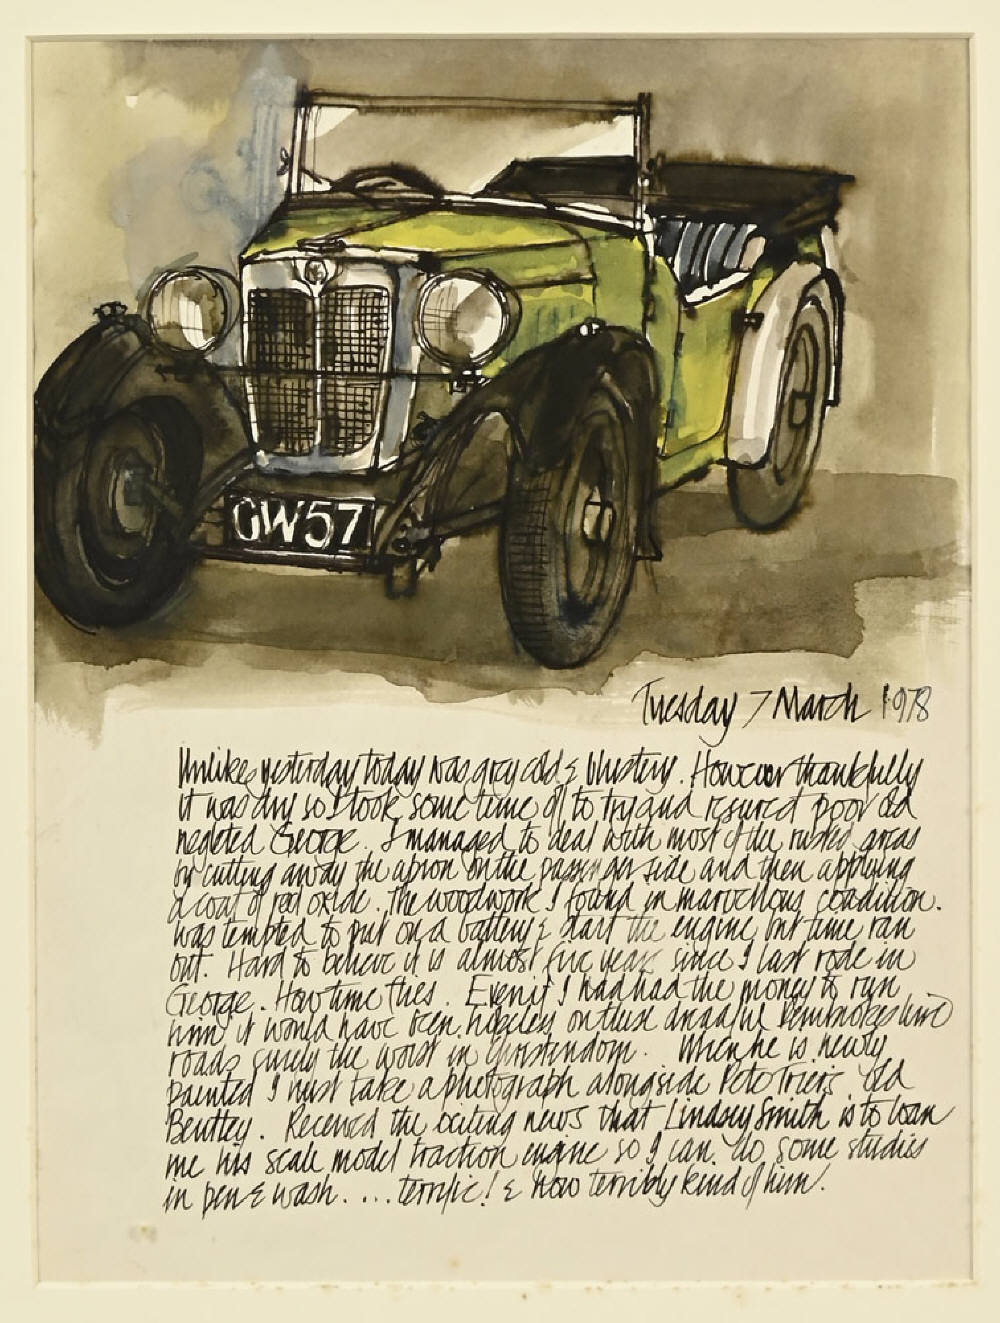 GW57
Tuesday 7 March 1978
Unlike yesterday today was grey cold & blustery. However thankfully
it was dry so I took some time off to try and resurect poor old
negleted George. I managed to deal with most of the rusted areas
by cutting away the apron on the passenger side and then applying
a coat of red oxide. The woodwork I found in marvellous condition.
was tempted to put on a battery & start the engine, but time ran
out. Hard to believe it is almost five years since I last rode in
George. How time flies. Even if I had had the money to run
him it would have been hopeless on these Pembrokeshire
roads surely the worst in Christendom. When he is newly
painted I must take a photograph alongside Pete old
Bentley. Received the exciting news that Lindsey Smith is to loan
me his scale model traction engine so I can do some studies
in pen & wash. ... terrific! & how terribly kind of him!